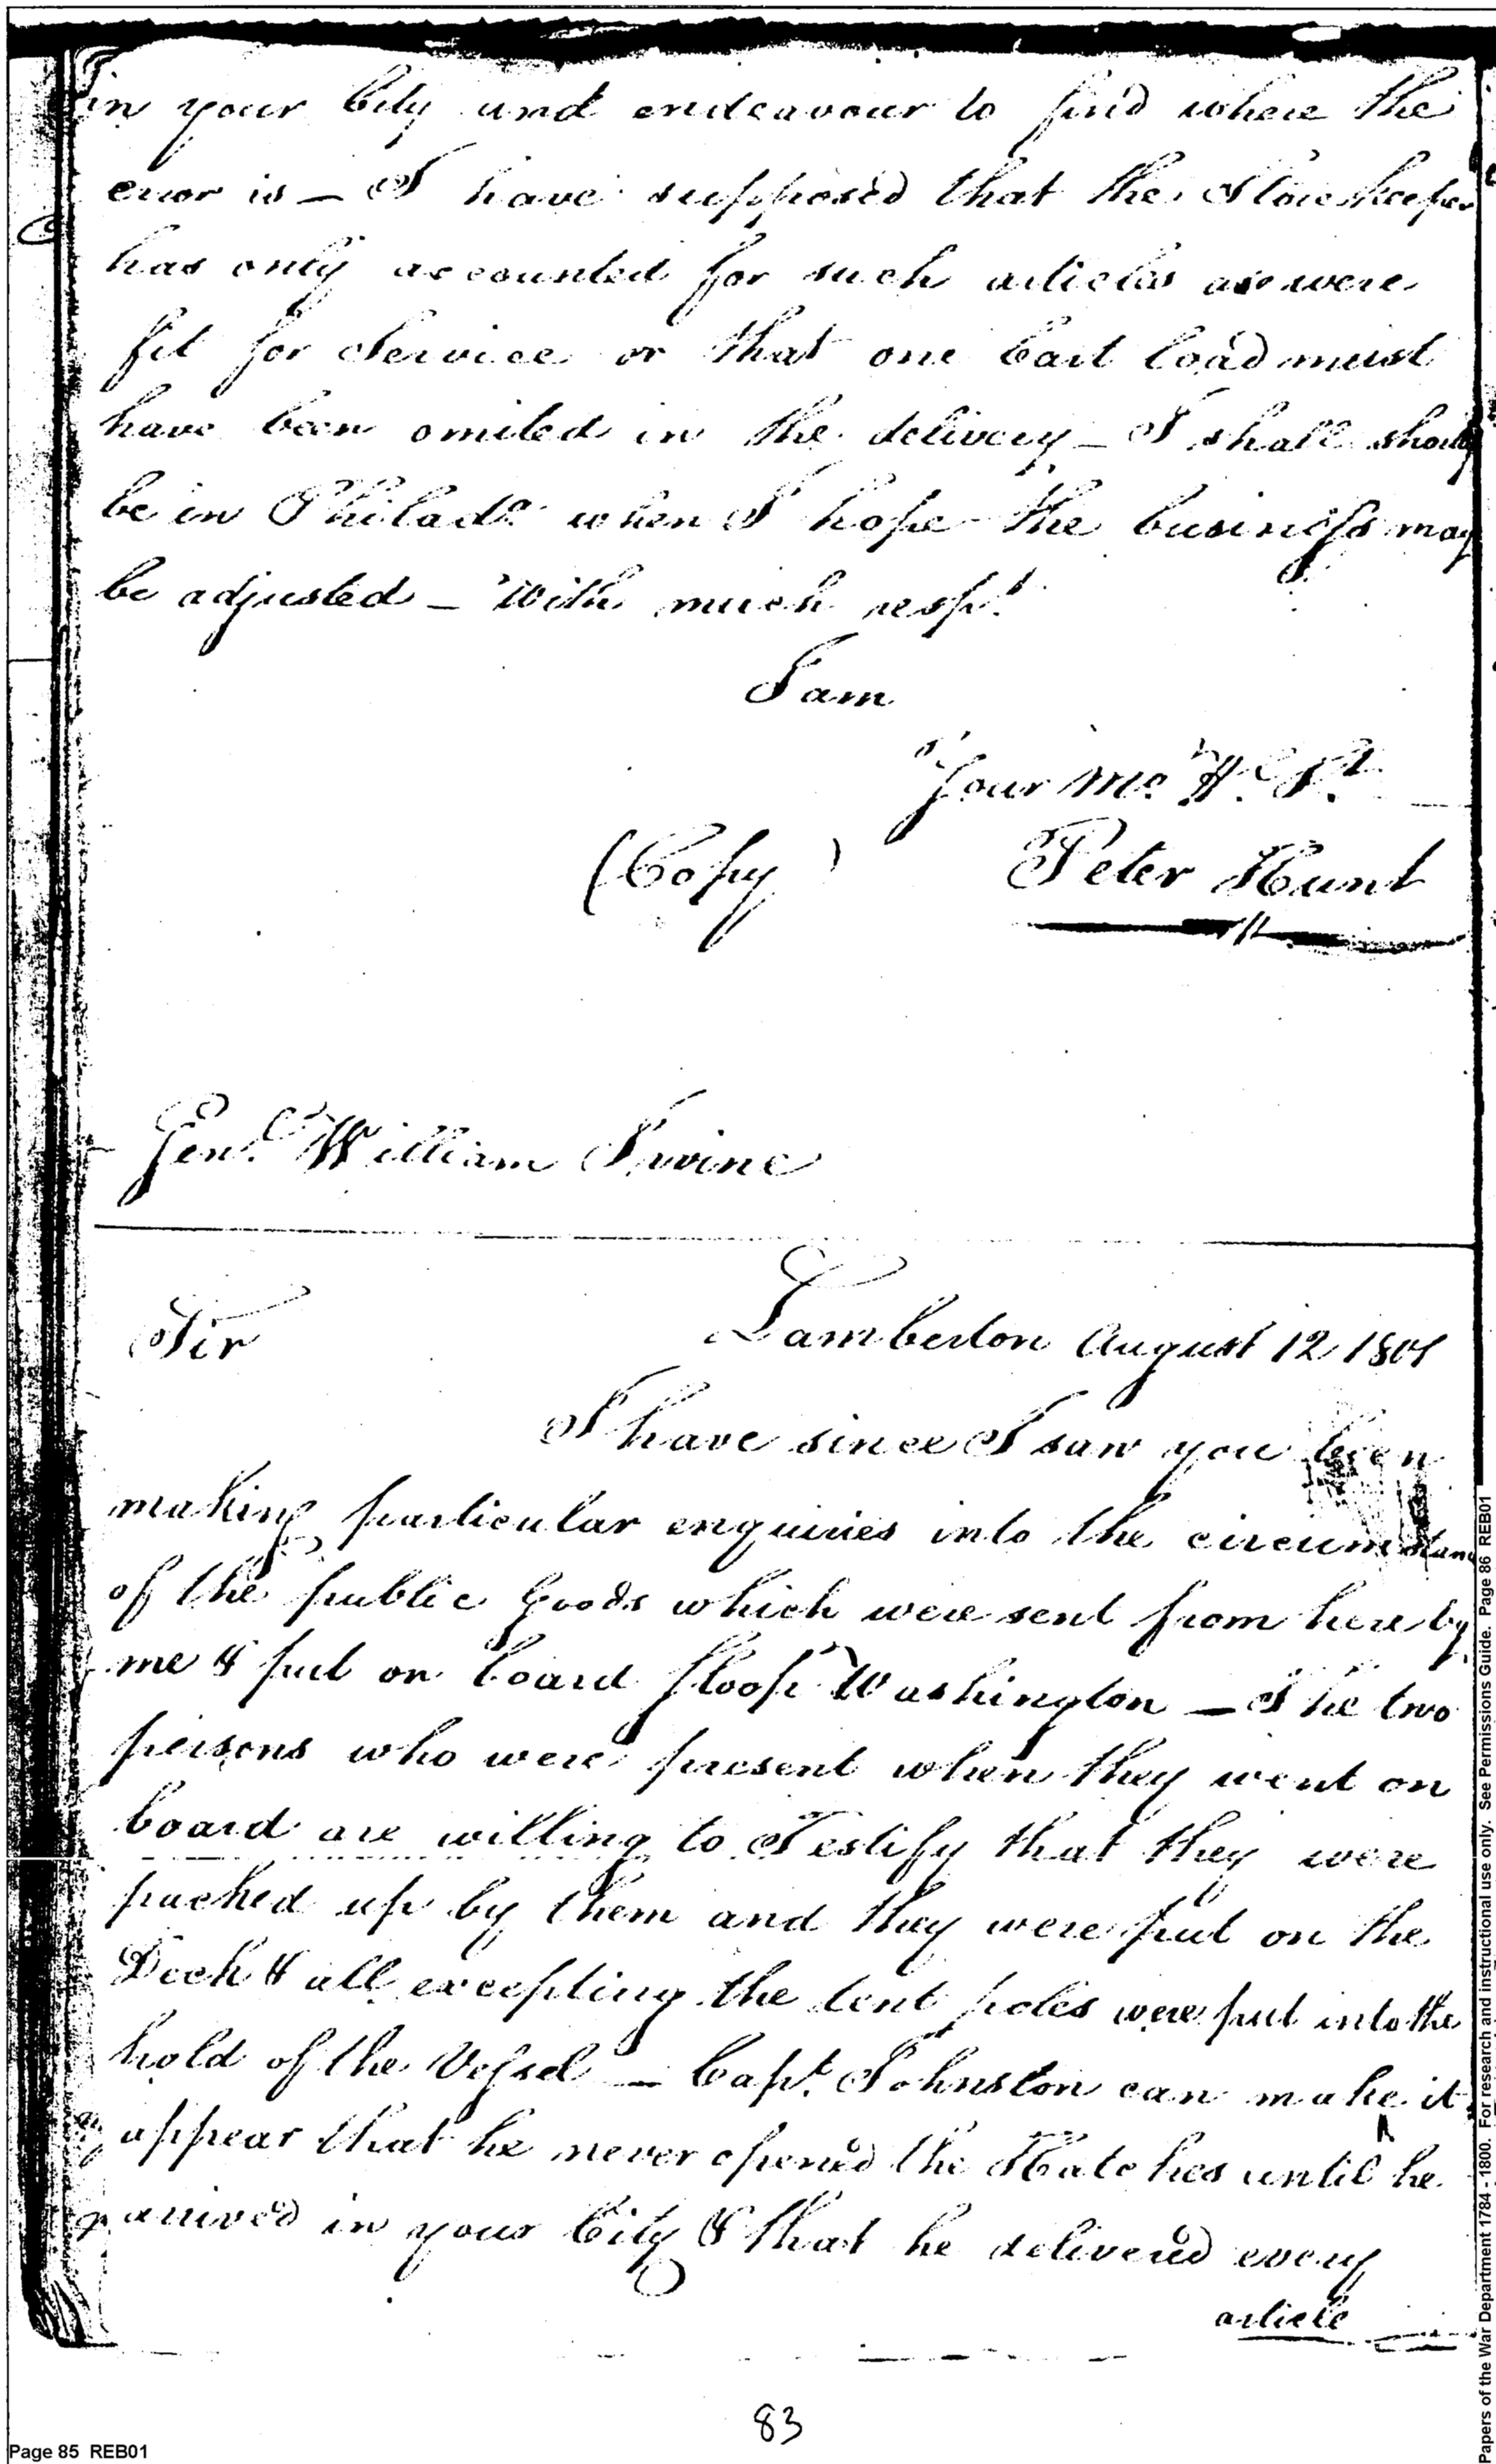 in your City and endeavour to find where the
error is — I have supposed that the Storekeeper
has only accounted for such articles as were
fit for Service or that one Cart load must
have been omited in the delivery — I shall shortly
be in Philada when I hope the business may
be adjusted — With much respt
I am
Your Mo. H. St
(Copy) Peter Hunt
Genl William Irvine
Sir Lamberton August 12 1801
I have since I saw you been
making particular enquiries into the circumstan
of the public Goods which were sent from here by
me & put on board Sloop Washington — The two
persons who were present when they went on
board are willing to Testify that they were
packed up by them and they were put on the
Deck & all excepting the tent poles were put into the
hold of the Vessel — Capt. Johnston can make it
appear that he never open'd the Hatches until he
arrived in your City & that he delivered every
article
83
Page 85 REB01
Papers of the War Department 1784 - 1800. For research and instructional use only. See Permissions Guide. Page 86 REB01